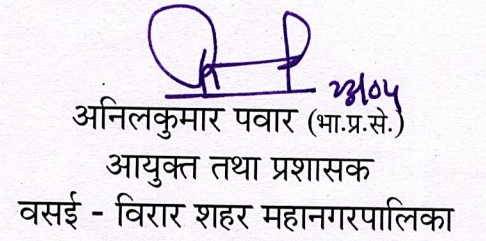 23/04
अनिलकुमार पवार (भा.प्र.से.)
आयुक्त तथा प्रशासक
वसई - विरार शहर महानगरपालिका